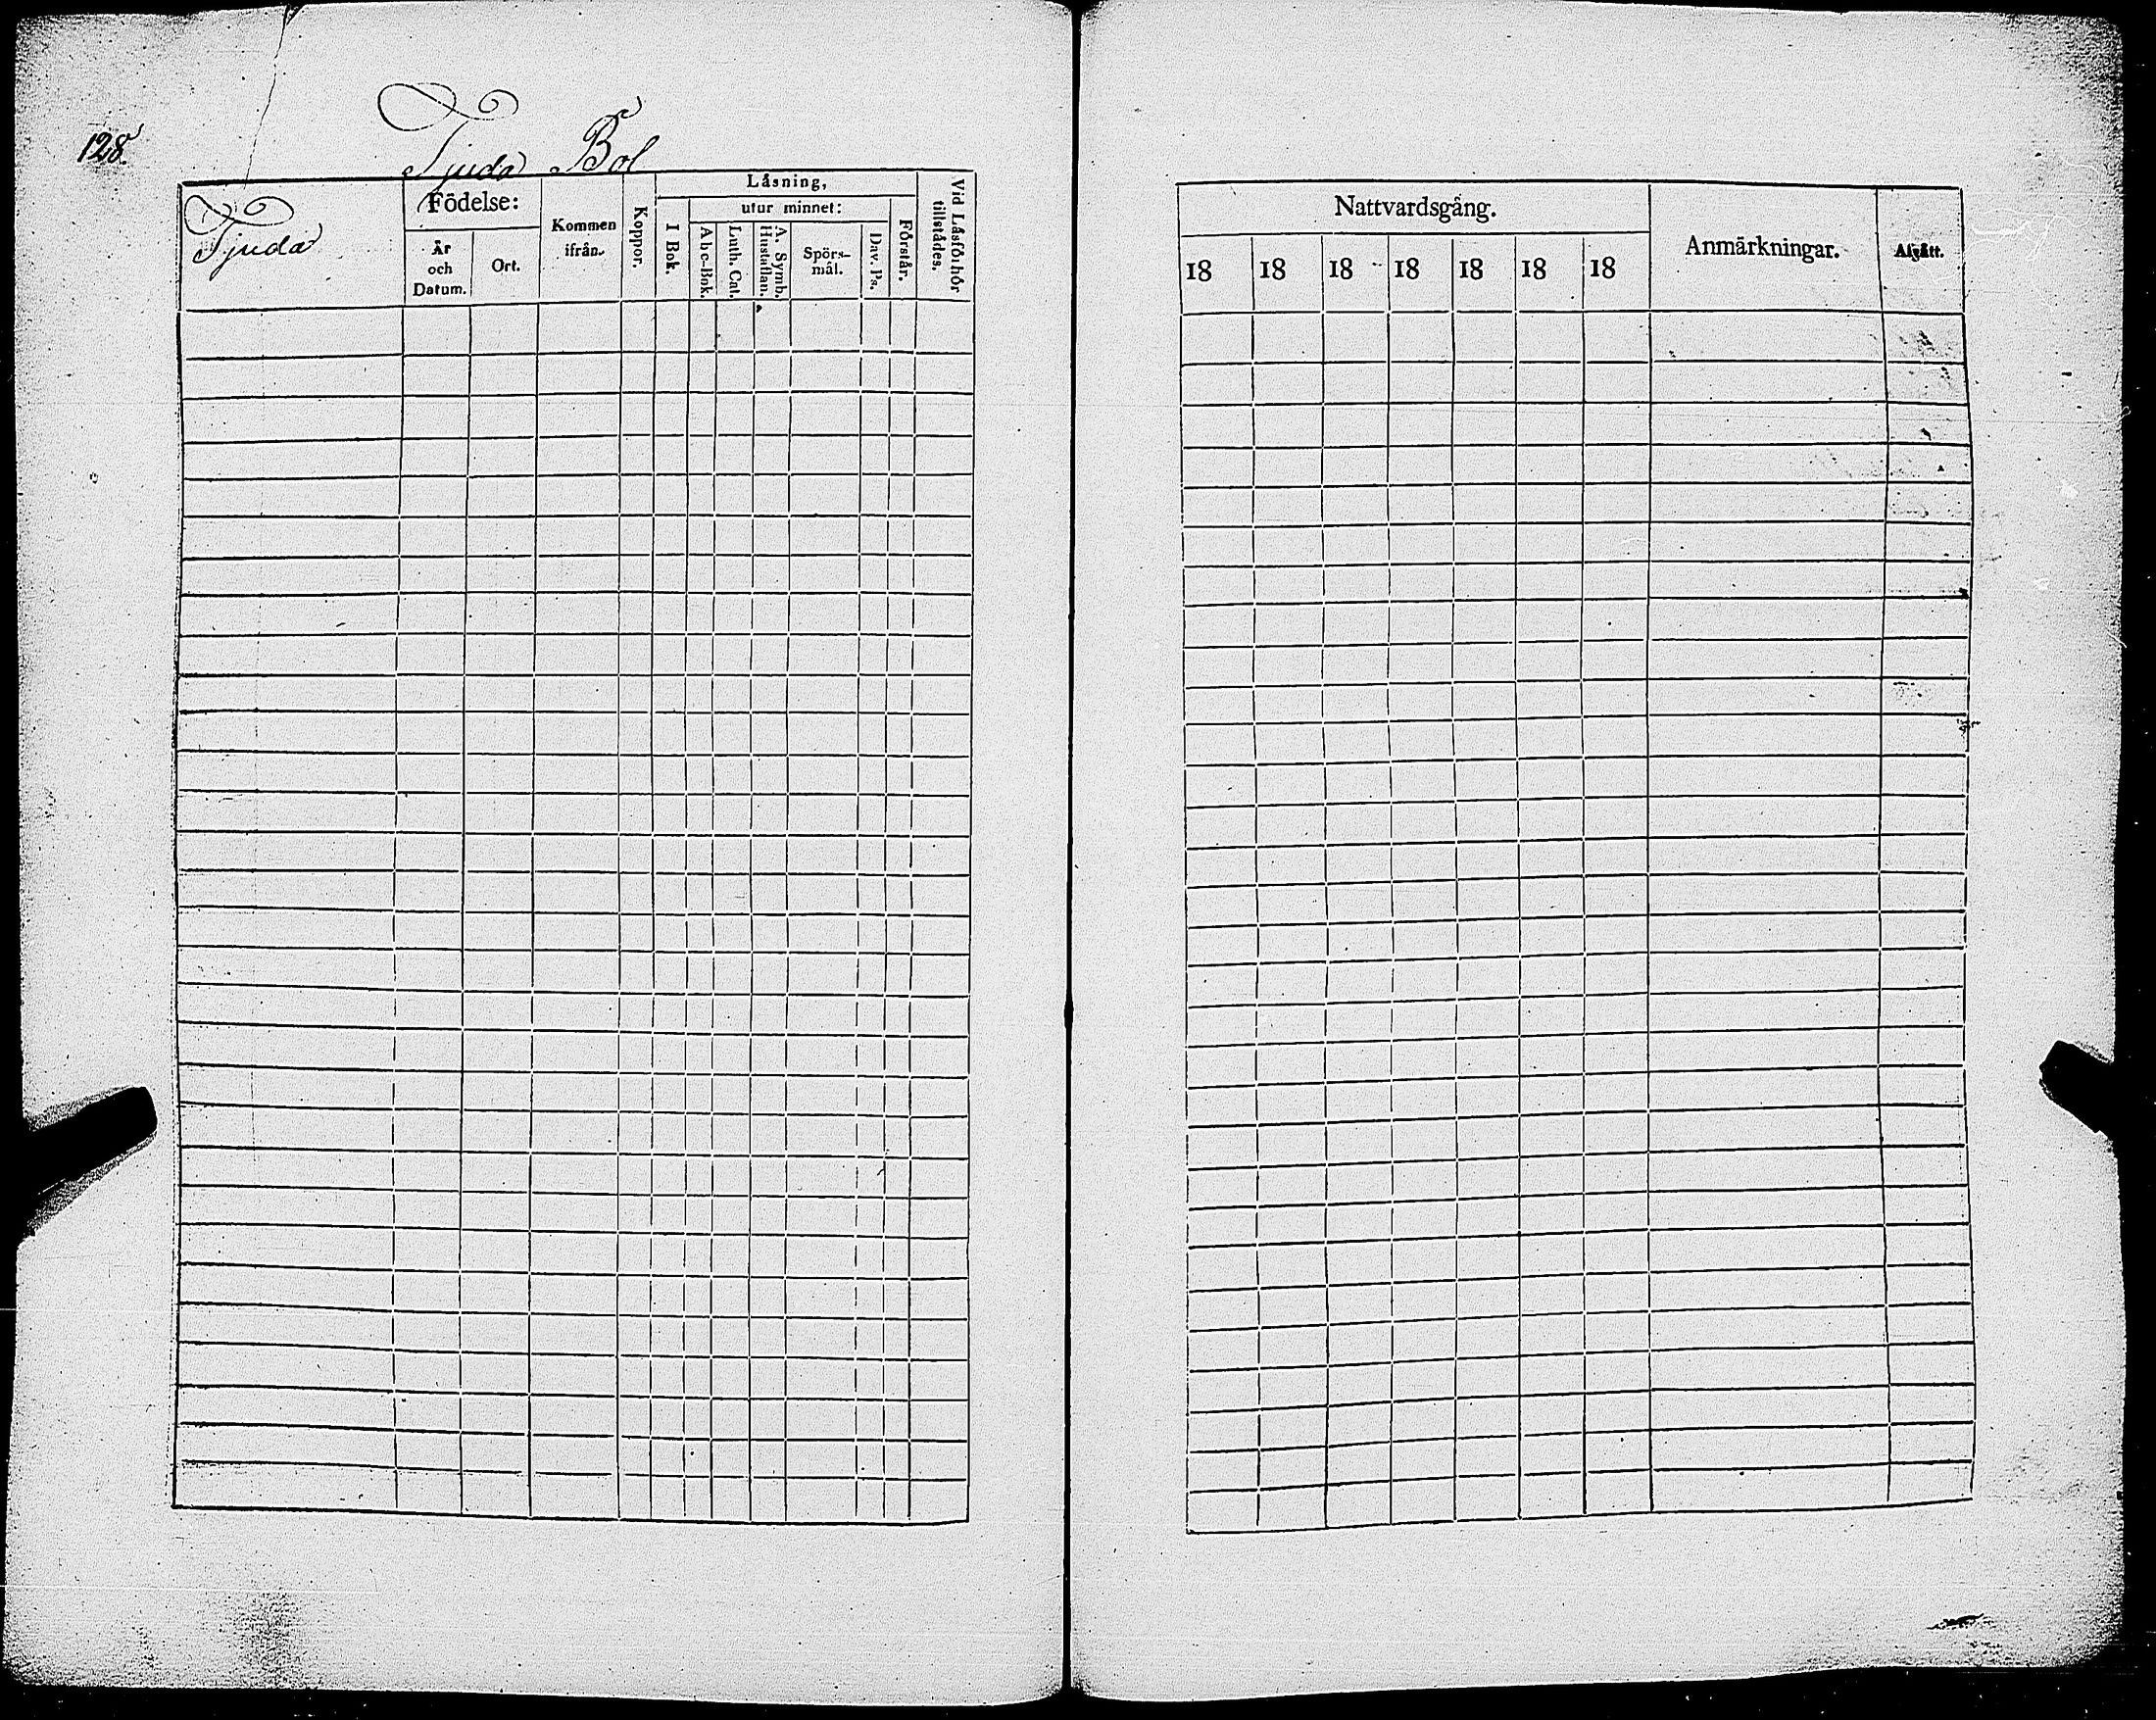 128.
Tjuda Bol
Tjuda
Födelse:
År
och
Datum.
Ort.
Kommen
ifrån.
Koppor.
Låsning,
I Bok.
utur minnet:
Abc-Bok.
Luth. Cat.
A. Symb.
Hustaflan.
Spörs-
mål.
Dav. Ps.
Förstår.
Vid Låsförhör
tillstådes.
Nattvardsgång.
18 18 18 18 18 18 18
Anmärkningar.
Afgått.